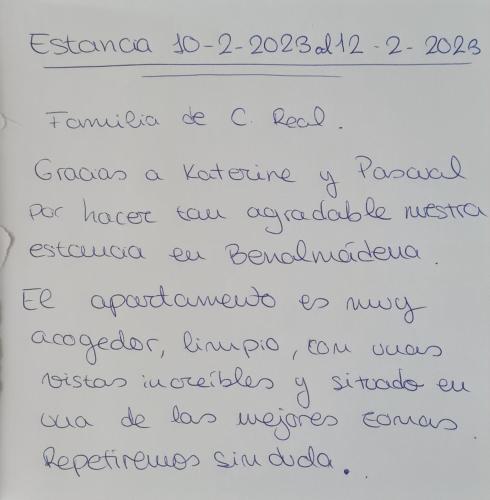 Estancia 10-2-2023 al 12-2-2023
Familia de C. Real.
Gracias a Katerine y Pascual
por hacer tan agradable nuestra
estancia en Benalmádena.
El apartamento es muy
acogedor, limpio, con unas
vistas increíbles y situado en
una de las mejores zonas.
Repetiremos sin duda.